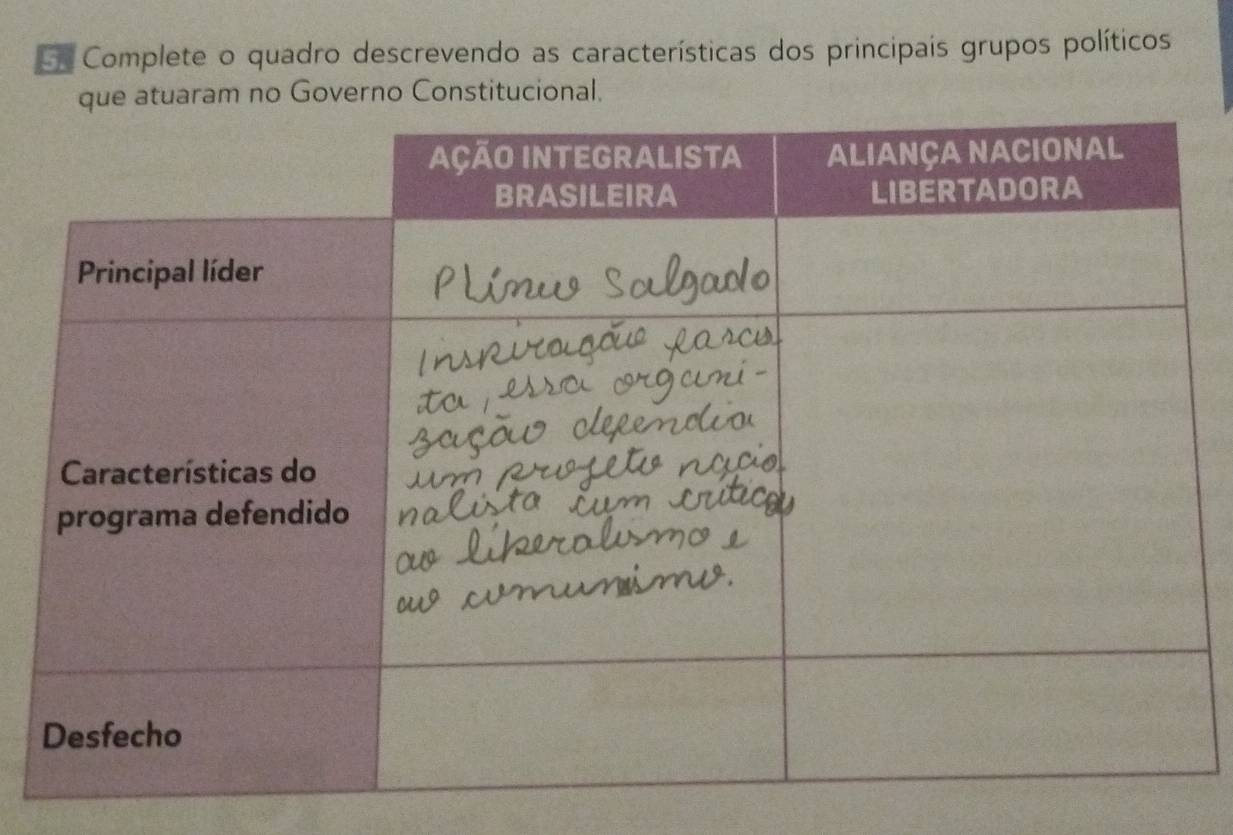 5. Complete o quadro descrevendo as características dos principais grupos políticos
que atuaram no Governo Constitucional.
AÇÃO INTEGRALISTA
BRASILEIRA
ALIANÇA NACIONAL
LIBERTADORA
Principal líder
Plínio Salgado
Características do
programa defendido
Inspiração fascis
ta, essa organi-
zação defendia
um projeto nacio
nalista com críticas
ao liberalismo e
ao comunismo.
Desfecho